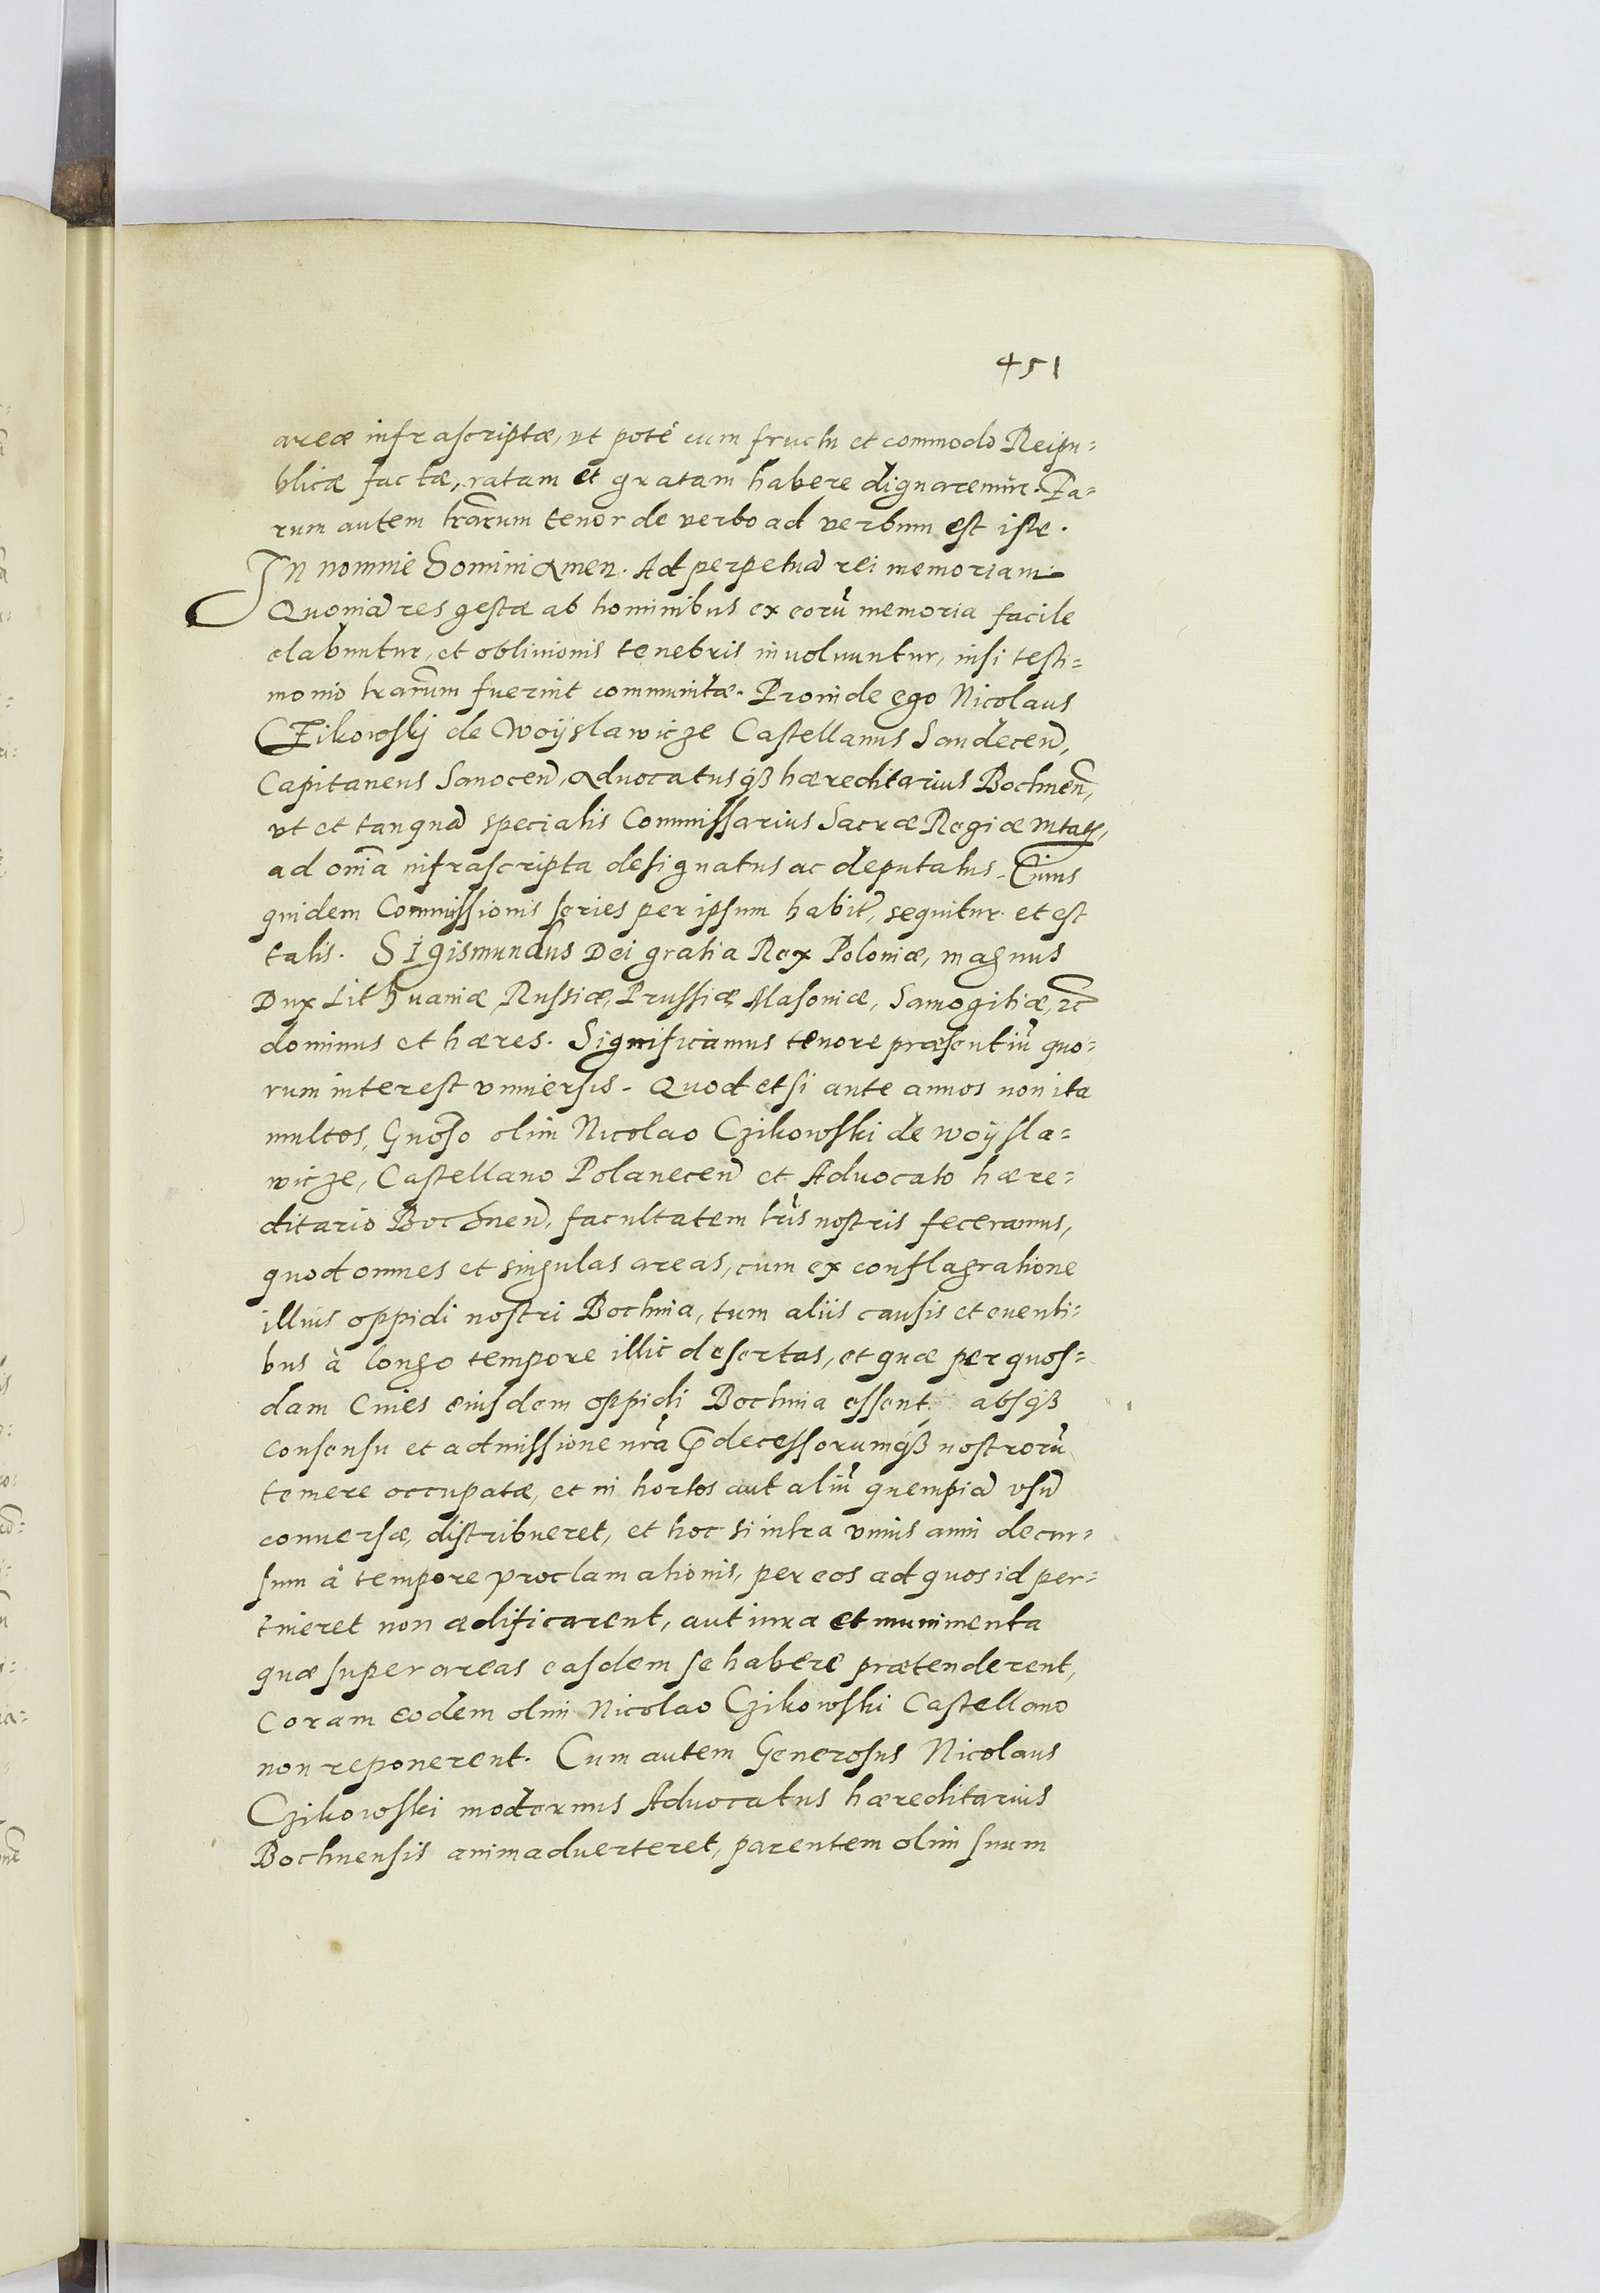 451
areæ infrascriptæ, ut poté cum fructu et commodo Reipu=
blicæ factæ, ratam et gratam habere dignaremur. Ea=
rum autem lrarum tenor de verbo ad verbum est iste.
In nomine Domini Amen. Ad perpetuā rei memoriam
Quoniā res gestæ ab hominibus ex eorū memoria facile
elabuntur, et oblivionis tenebris involvuntur, nisi testi=
monio lrarum fuerint communitæ. Proinde ego Nicolaus
CZikowskj de Woijslawicze Castellanus Sandecen̄,
Capitaneus Sanocen̄, Advocatusqꝫ hæreditarius Bochnen̄,
vt et tanquā specialis Commissarius Sacræ Regiæ Mtatꝭ,
ad omīa infrascripta designatus ac deputatus. Cuius
quidem Commissionis series per ipsum habit̄, sequitur et est
talis. Sigismundus Dei gratia Rex Poloniæ, magnus
Dux Lithvaniæ, Russiæ, Prussiæ, Masoniæ, Samogitiæ, ꝛc̄
dominus et hæres. Significamus tenore præsentiū quo=
rum interest vniversis. Quod etsi ante annos non ita
multos, Gnōso olim Nicolao Czikowski de woijsla=
wicze, Castellano Polanecen̄ et Advocato hære=
ditario Bochnen̄, facultatem lrīs nostris feceramus,
quod omnes et singulas areas, cum ex conflagratione
illius oppidi nostri Bochnia, tum aliis causis et eventi=
bus à longo tempore illic desertas, et quæ per quos=
dam Cives eiusdem oppidi Bochnia essent absqꝫ
consensu et admissione nrā p̄decessorumqꝫ nostrorū
temere occupatæ, et in hortos aut aliū quempiā vsū
conversæ, distribueret, et hoc si intra vnius anni decur=
sum à tempore proclamationis, per eos ad quos id per=
tineret non ædificarent, aut iura et munimenta
quæ super areas easdem se habere prætenderent,
Coram eodem olim Nicolao Czikowski Castellano
non reponerent. Cum autem Generosus Nicolaus
Czikowski modernus Advocatus hæreditarius
Bochnensis animadverteret, parentem olim suum